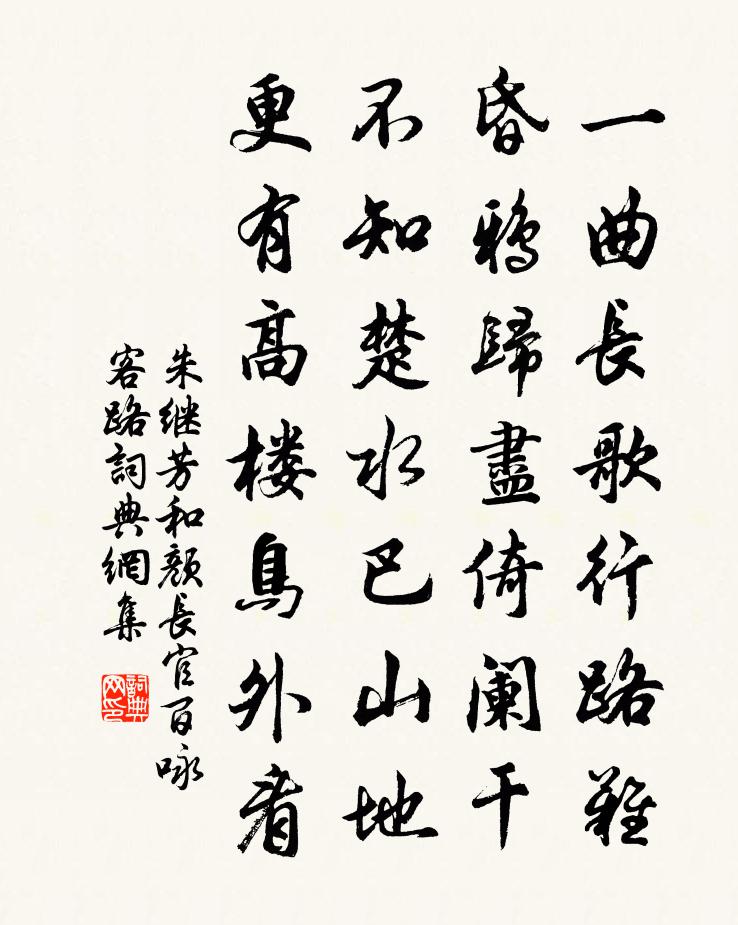 一曲長歌行路難
昏鴉歸盡倚闌干
不知楚水巴山地
更有高楼鳥外看
朱继芳和顏長官百咏
客路詞典網集
詞典网印